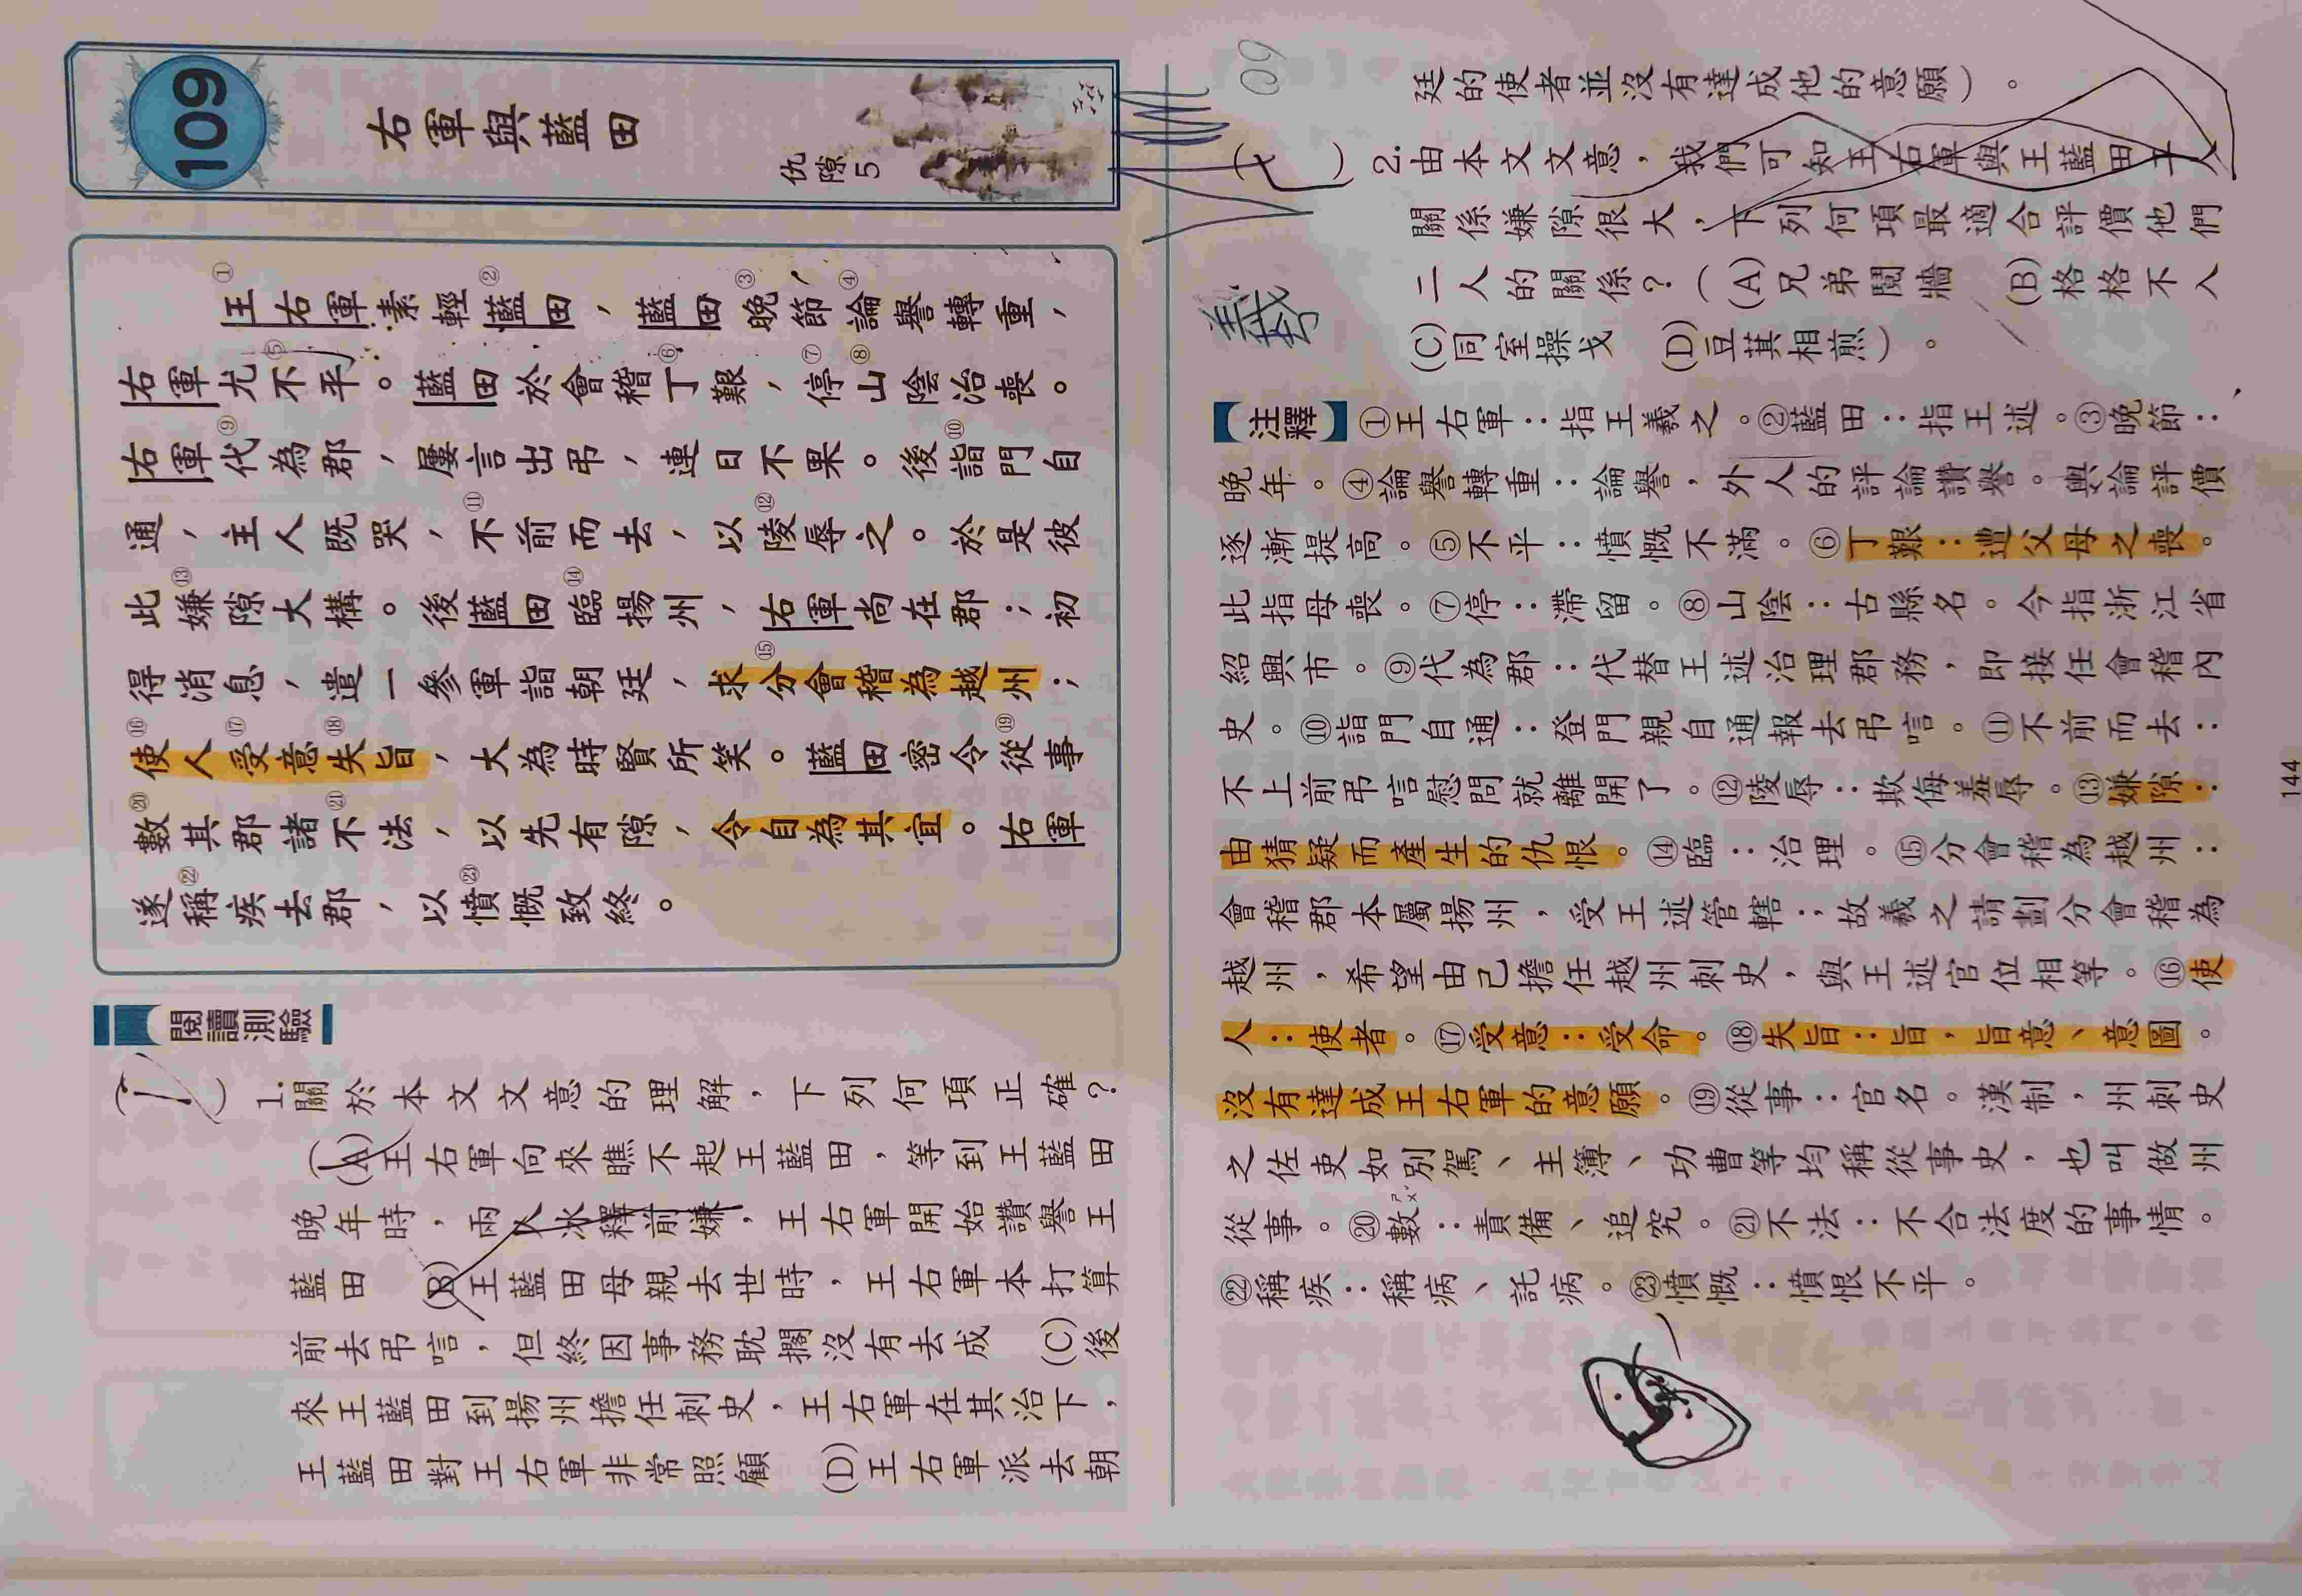 109
右軍與藍田
仇隙5
①王右軍素輕②藍田，藍田③晚節④論譽轉重，
右軍尤⑤不平。藍田於會稽⑥丁艱，⑦停⑧山陰治喪。
右軍⑨代為郡，屢言出弔，連日不果。後⑩詣門自
通，主人既哭，⑪不前而去，以⑫陵辱之。於是彼
此⑬嫌隙大構。後藍田⑭臨揚州，右軍尚在郡；初
得消息，遣一參軍詣朝廷，求⑮分會稽為越州；
⑯使人⑰受意⑱失旨，大為時賢所笑。藍田密令⑲從事
⑳數其郡諸㉑不法，以先有隙，令自為其宜。右軍
遂㉒稱疾去郡，以㉓憤慨致終。
閱讀測驗
1.關於本文文意的理解，下列何項正確？
(A)王右軍向來瞧不起王藍田，等到王藍田
晚年時，兩人冰釋前嫌，王右軍開始讚譽王
藍田　(B)王藍田母親去世時，王右軍本打算
前去弔唁，但終因事務耽擱沒有去成　(C)後
來王藍田到揚州擔任刺史，王右軍在其治下，
王藍田對王右軍非常照顧　(D)王右軍派去朝
廷的使者並沒有達成他的意願）。
（　）2.由本文文意，我們可知王右軍與王藍田二人
關係嫌隙很大，下列何項最適合評價他們
二人的關係？（(A)兄弟鬩牆　(B)格格不入
(C)同室操戈　(D)豆萁相煎）。
09
義
【注釋】①王右軍：指王羲之。②藍田：指王述。③晚節：
晚年。④論譽轉重：論譽，外人的評論讚譽。輿論評價
逐漸提高。⑤不平：憤慨不滿。⑥丁艱：遭父母之喪。
此指母喪。⑦停：滯留。⑧山陰：古縣名。今指浙江省
紹興市。⑨代為郡：代替王述治理郡務，即接任會稽內
史。⑩詣門自通：登門親自通報去弔唁。⑪不前而去：
不上前弔唁慰問就離開了。⑫陵辱：欺侮羞辱。⑬嫌隙：
由猜疑而產生的仇恨。⑭臨：治理。⑮分會稽為越州：
會稽郡本屬揚州，受王述管轄；故羲之請劃分會稽為
越州，希望由己擔任越州刺史，與王述官位相等。⑯使
人：使者。⑰受意：受命。⑱失旨：旨，旨意、意圖。
沒有達成王右軍的意願。⑲從事：官名。漢制，州刺史
之佐吏如別駕、主簿、功曹等均稱從事史，也叫做州
從事。⑳數ㄕㄨˇ：責備、追究。㉑不法：不合法度的事情。
㉒稱疾：稱病、託病。㉓憤慨：憤恨不平。
144